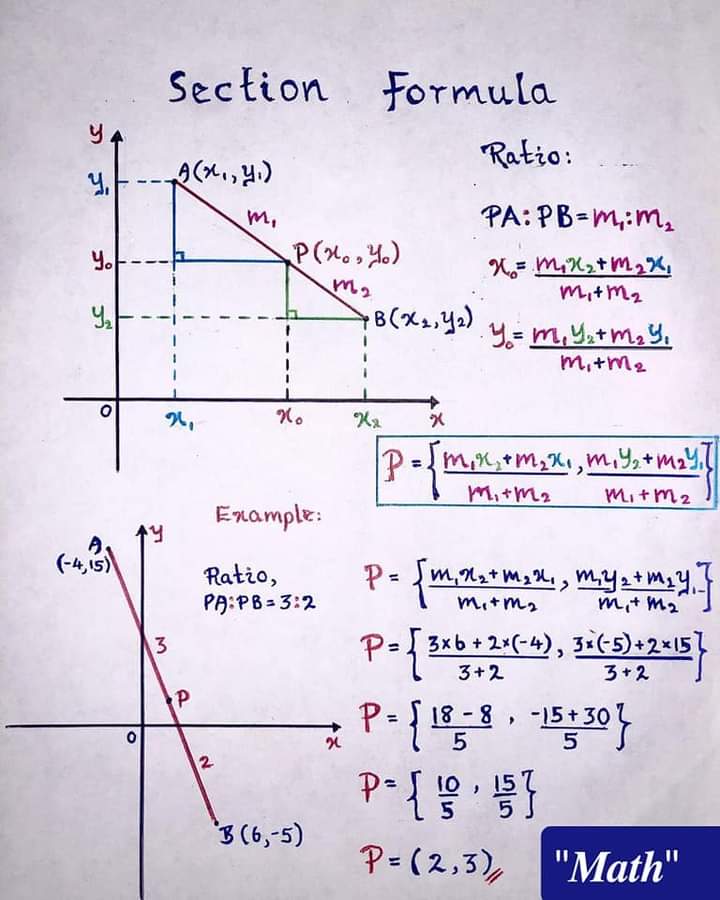 Section Formula
y
y₁
A(x₁,y₁)
m₁
y₀
P(x₀,y₀)
m₂
y₂
B(x₂,y₂)
0
x₁
x₀
x₂
x
Ratio:
PA:PB=m₁:m₂
x₀= m₁x₂+m₂x₁
m₁+m₂
y₀= m₁y₂+m₂y₁
m₁+m₂
P={m₁x₂+m₂x₁, m₁y₂+m₂y₁}
m₁+m₂ m₁+m₂
Example:
A
(-4,15)
y
3
P
0
x
2
B(6,-5)
Ratio,
PA:PB=3:2
P= {m₁x₂+m₂x₁, m₁y₂+m₂y₁}
m₁+m₂ m₁+m₂
P={3×6+2×(-4), 3×(-5)+2×15}
3+2 3+2
P={18-8, -15+30}
5 5
P={10, 15}
5 5
P=(2,3)
"Math"